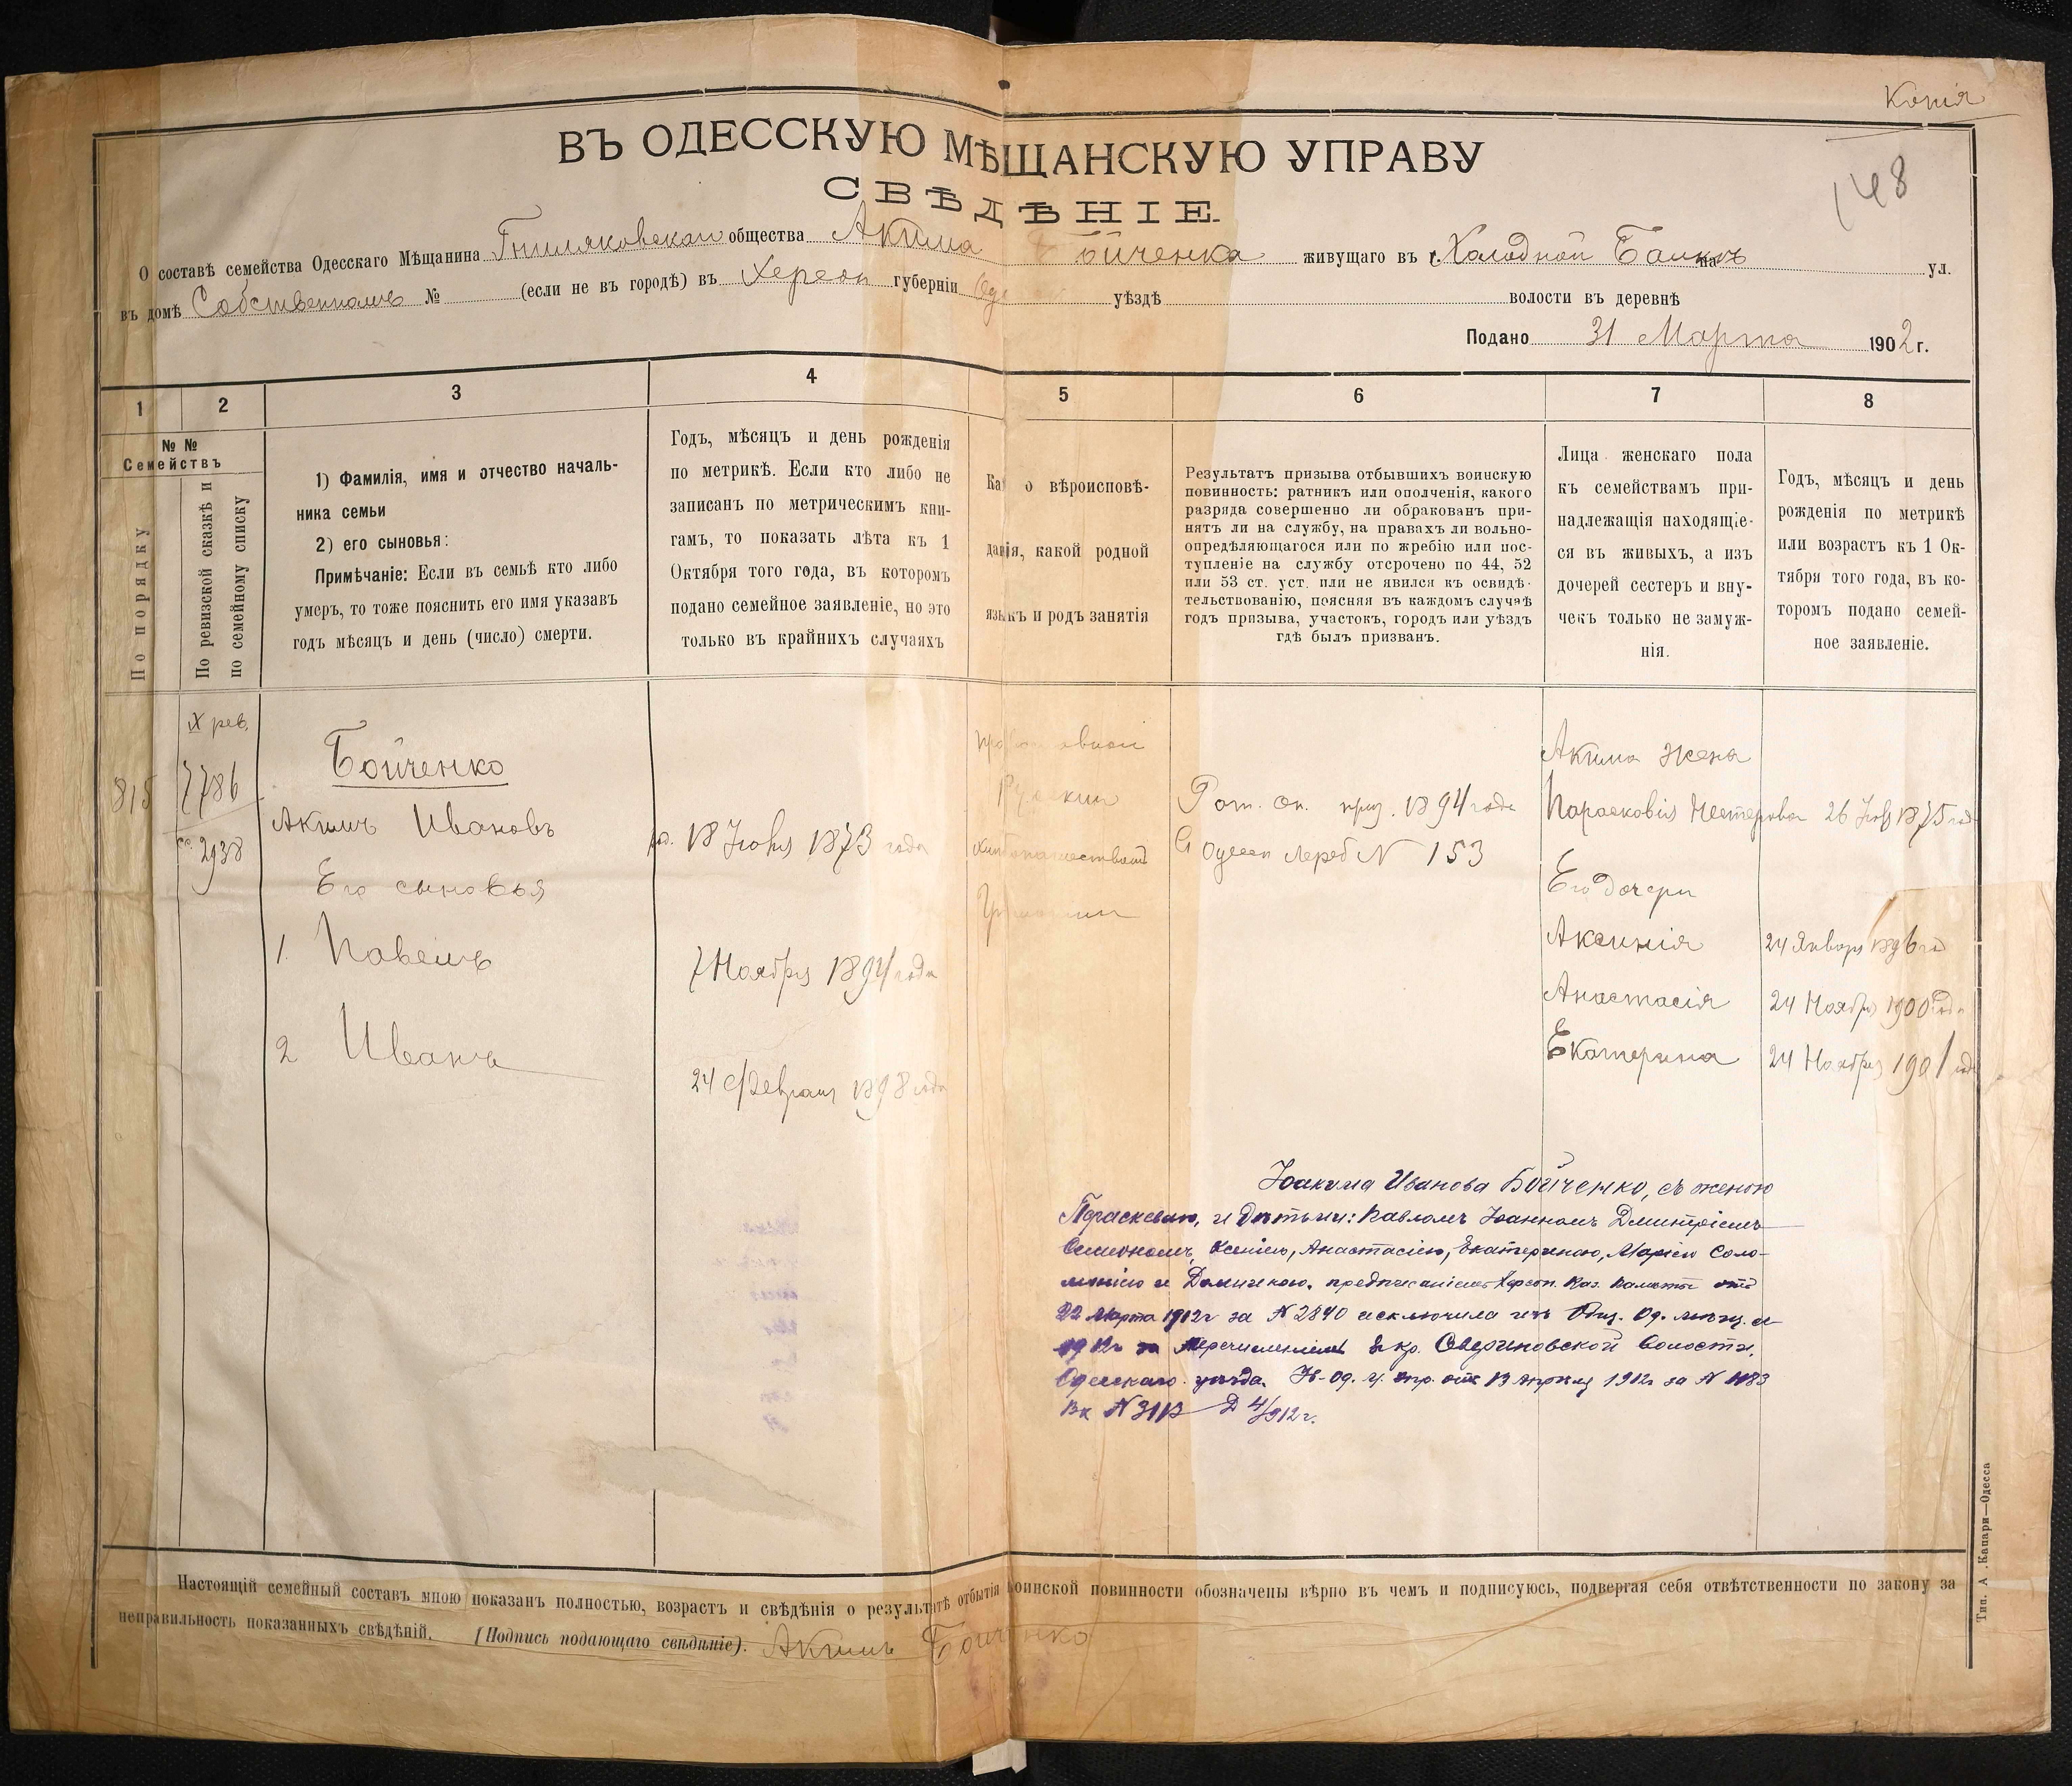 Копія
148
ВЪ ОДЕССКУЮ МѢЩАНСКУЮ УПРАВУ
СВѢДѢНІЕ
О составѣ семейства Одесскаго Мѣщанина Гниляковскаго общества Акима Бойченка живущаго въ г. Холодной Балкѣ на ул.
въ домѣ Собственномъ № (если не въ городѣ) въ Херсон губерніи уѣздѣ волости въ деревнѣ
Подано 31 Марта 1902 г.
1 2 3 4 5 6 7 8
№ №
Семействъ
По порядку
По ревизской сказкѣ и
по семейному списку
1) Фамилія, имя и отчество началь-
ника семьи
2) его сыновья:
Примѣчаніе: Если въ семьѣ кто либо
умеръ, то тоже пояснить его имя указавъ
годъ мѣсяцъ и день (число) смерти.
Годъ, мѣсяцъ и день рожденія
по метрикѣ. Если кто либо не
записанъ по метрическимъ кни-
гамъ, то показать лѣта къ 1
Октября того года, въ которомъ
подано семейное заявленіе, но это
только въ крайнихъ случаяхъ
вѣроисповѣ-
данія, какой родной
языкъ и родъ занятія
Результатъ призыва отбывшихъ воинскую
повинность: ратникъ или ополченія, какого
разряда совершенно ли обракованъ при-
нятъ ли на службу, на правахъ ли вольно-
опредѣляющагося или по жребію или пос-
тупленіе на службу отсрочено по 44, 52
или 53 ст. уст. или не явился къ освидѣ-
тельствованію, поясняя въ каждомъ случаѣ
годъ призыва, участокъ, городъ или уѣздъ
гдѣ былъ призванъ.
Лица женскаго пола
къ семействамъ при-
надлежащія находящіе-
ся въ живыхъ, а изъ
дочерей сестеръ и вну-
чекъ только не замуж-
нія.
Годъ, мѣсяцъ и день
рожденія по метрикѣ
или возрастъ къ 1 Ок-
тября того года, въ ко-
торомъ подано семей-
ное заявленіе.
X рев.
815
7786
2938
Бойченко
Акимъ Ивановъ
род. 18 1873 года
Его сыновья
1. Павелъ
7 Ноября 1894 года
2 Иванъ
24 Февраля 1898 года
Русскій
Рат. оп. приз. 1894 года
жреб № 153
Акима жена
Парасковія Нестерова 26 1875 год
Его дочери
Аксинія 24 Января 1896 год
Анастасія 24 Ноября 1900 года
Екатерина 24 Ноября 1901 года
Іоакима Иванова Бойченко, съ женою
Параскевою, и дѣтьми: Павломъ Іоанномъ Дмитріемъ
Семеномъ, Ксеніею, Анастасіею, Екатериною, Маріею Соло-
моніею и Домникою, предписаніемъ Херсон. Каз. Палаты отъ
22 Марта 1912 г за № 2840 исключила изъ Одес. мѣщ. съ
1912 г за перечисленіемъ въ кр. Севериновской Волости,
Одесскаго уѣзда. отъ 13 Апрѣля 1912 г за №
Вх № Д 4/912 г.
Настоящій семейный составъ мною показанъ полностью, возрастъ и свѣдѣнія о результатѣ отбытія воинской повинности обозначены вѣрно въ чемъ и подписуюсь, подвергая себя отвѣтственности по закону за
неправильность показанныхъ свѣдѣній. (Подпись подающаго свѣдѣніе). Акимъ Бойченко
Тип. А. Капари—Одесса